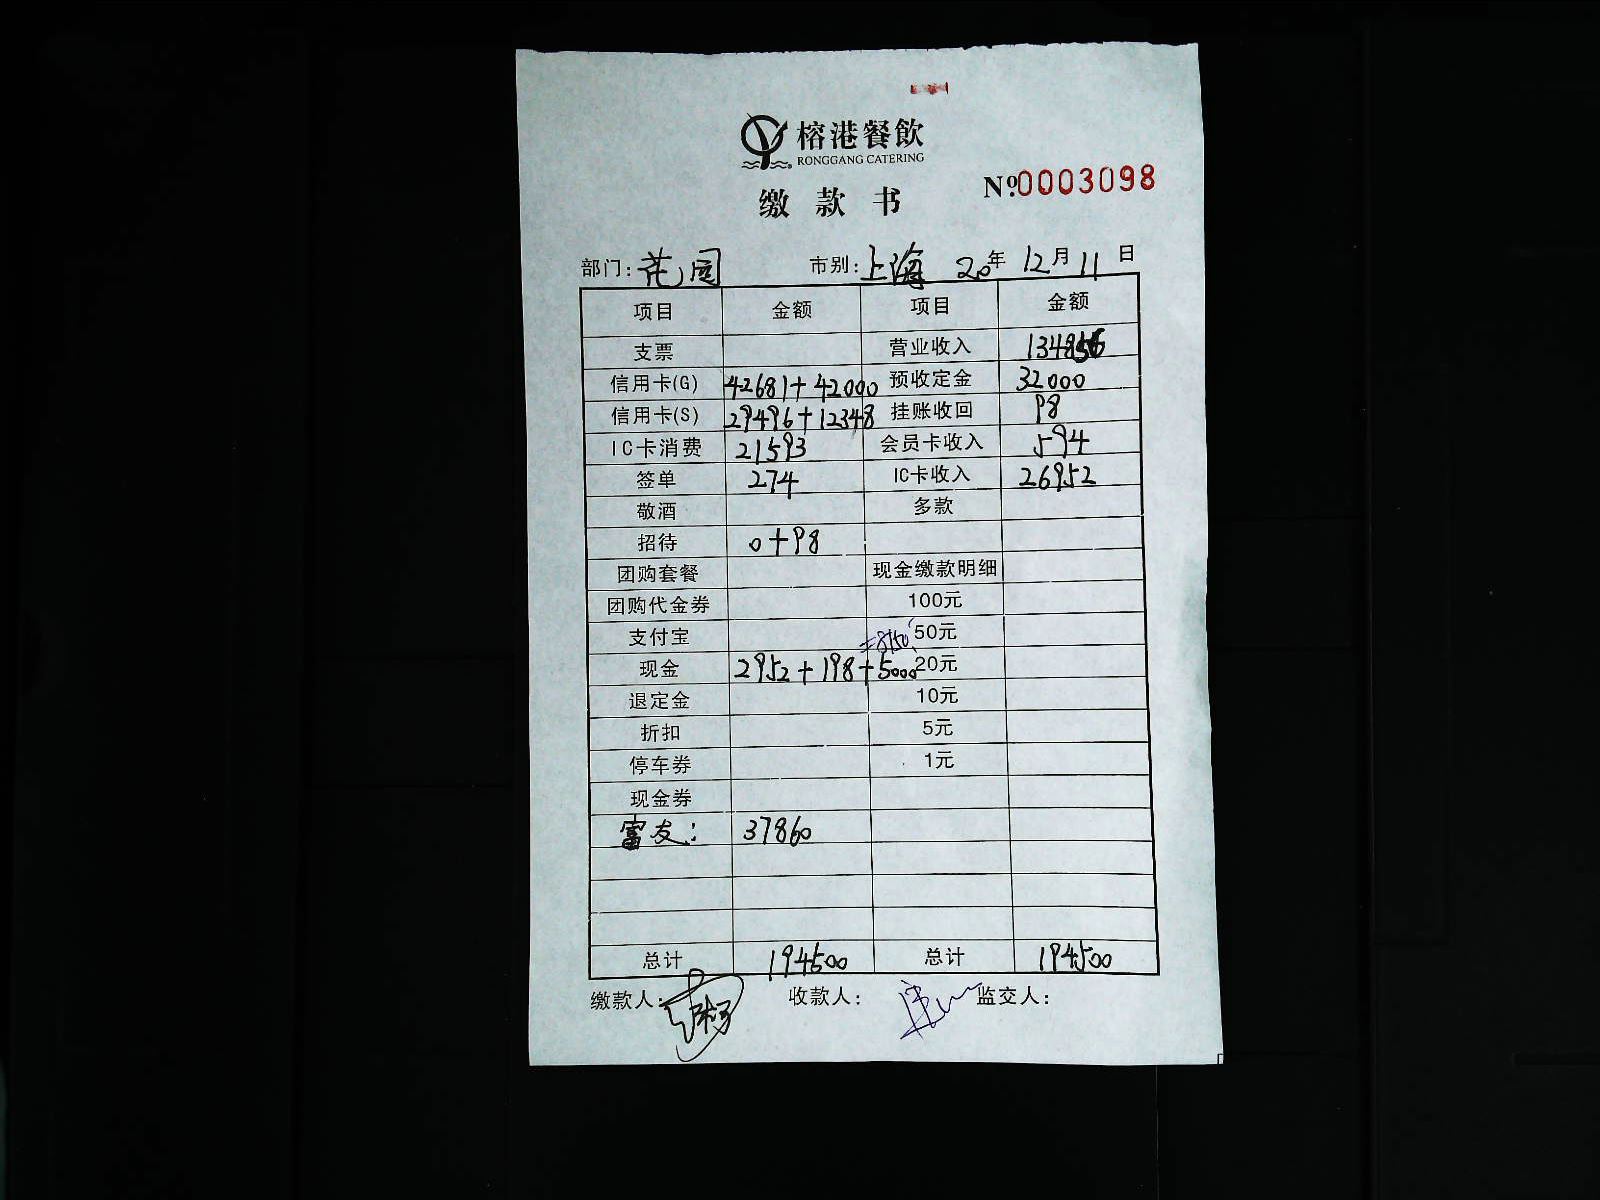 榕港餐飲
RONGGANG CATERING
缴款书
№0003098
部门：花园 市别：上海 20年12月11日
项目 金额 项目 金额
支票 营业收入 134856
信用卡(G) 42681+42000 预收定金 32000
信用卡(S) 29496+12348 挂账收回 98
IC卡消费 21593 会员卡收入 594
签单 274 IC卡收入 26952
敬酒 多款
招待 0+98
团购套餐 现金缴款明细
团购代金券 100元
支付宝 =8150 50元
现金 2952+198+5000 20元
退定金 10元
折扣 5元
停车券 1元
现金券
富友： 37860
总计 194500 总计 194500
缴款人： 收款人： 监交人：